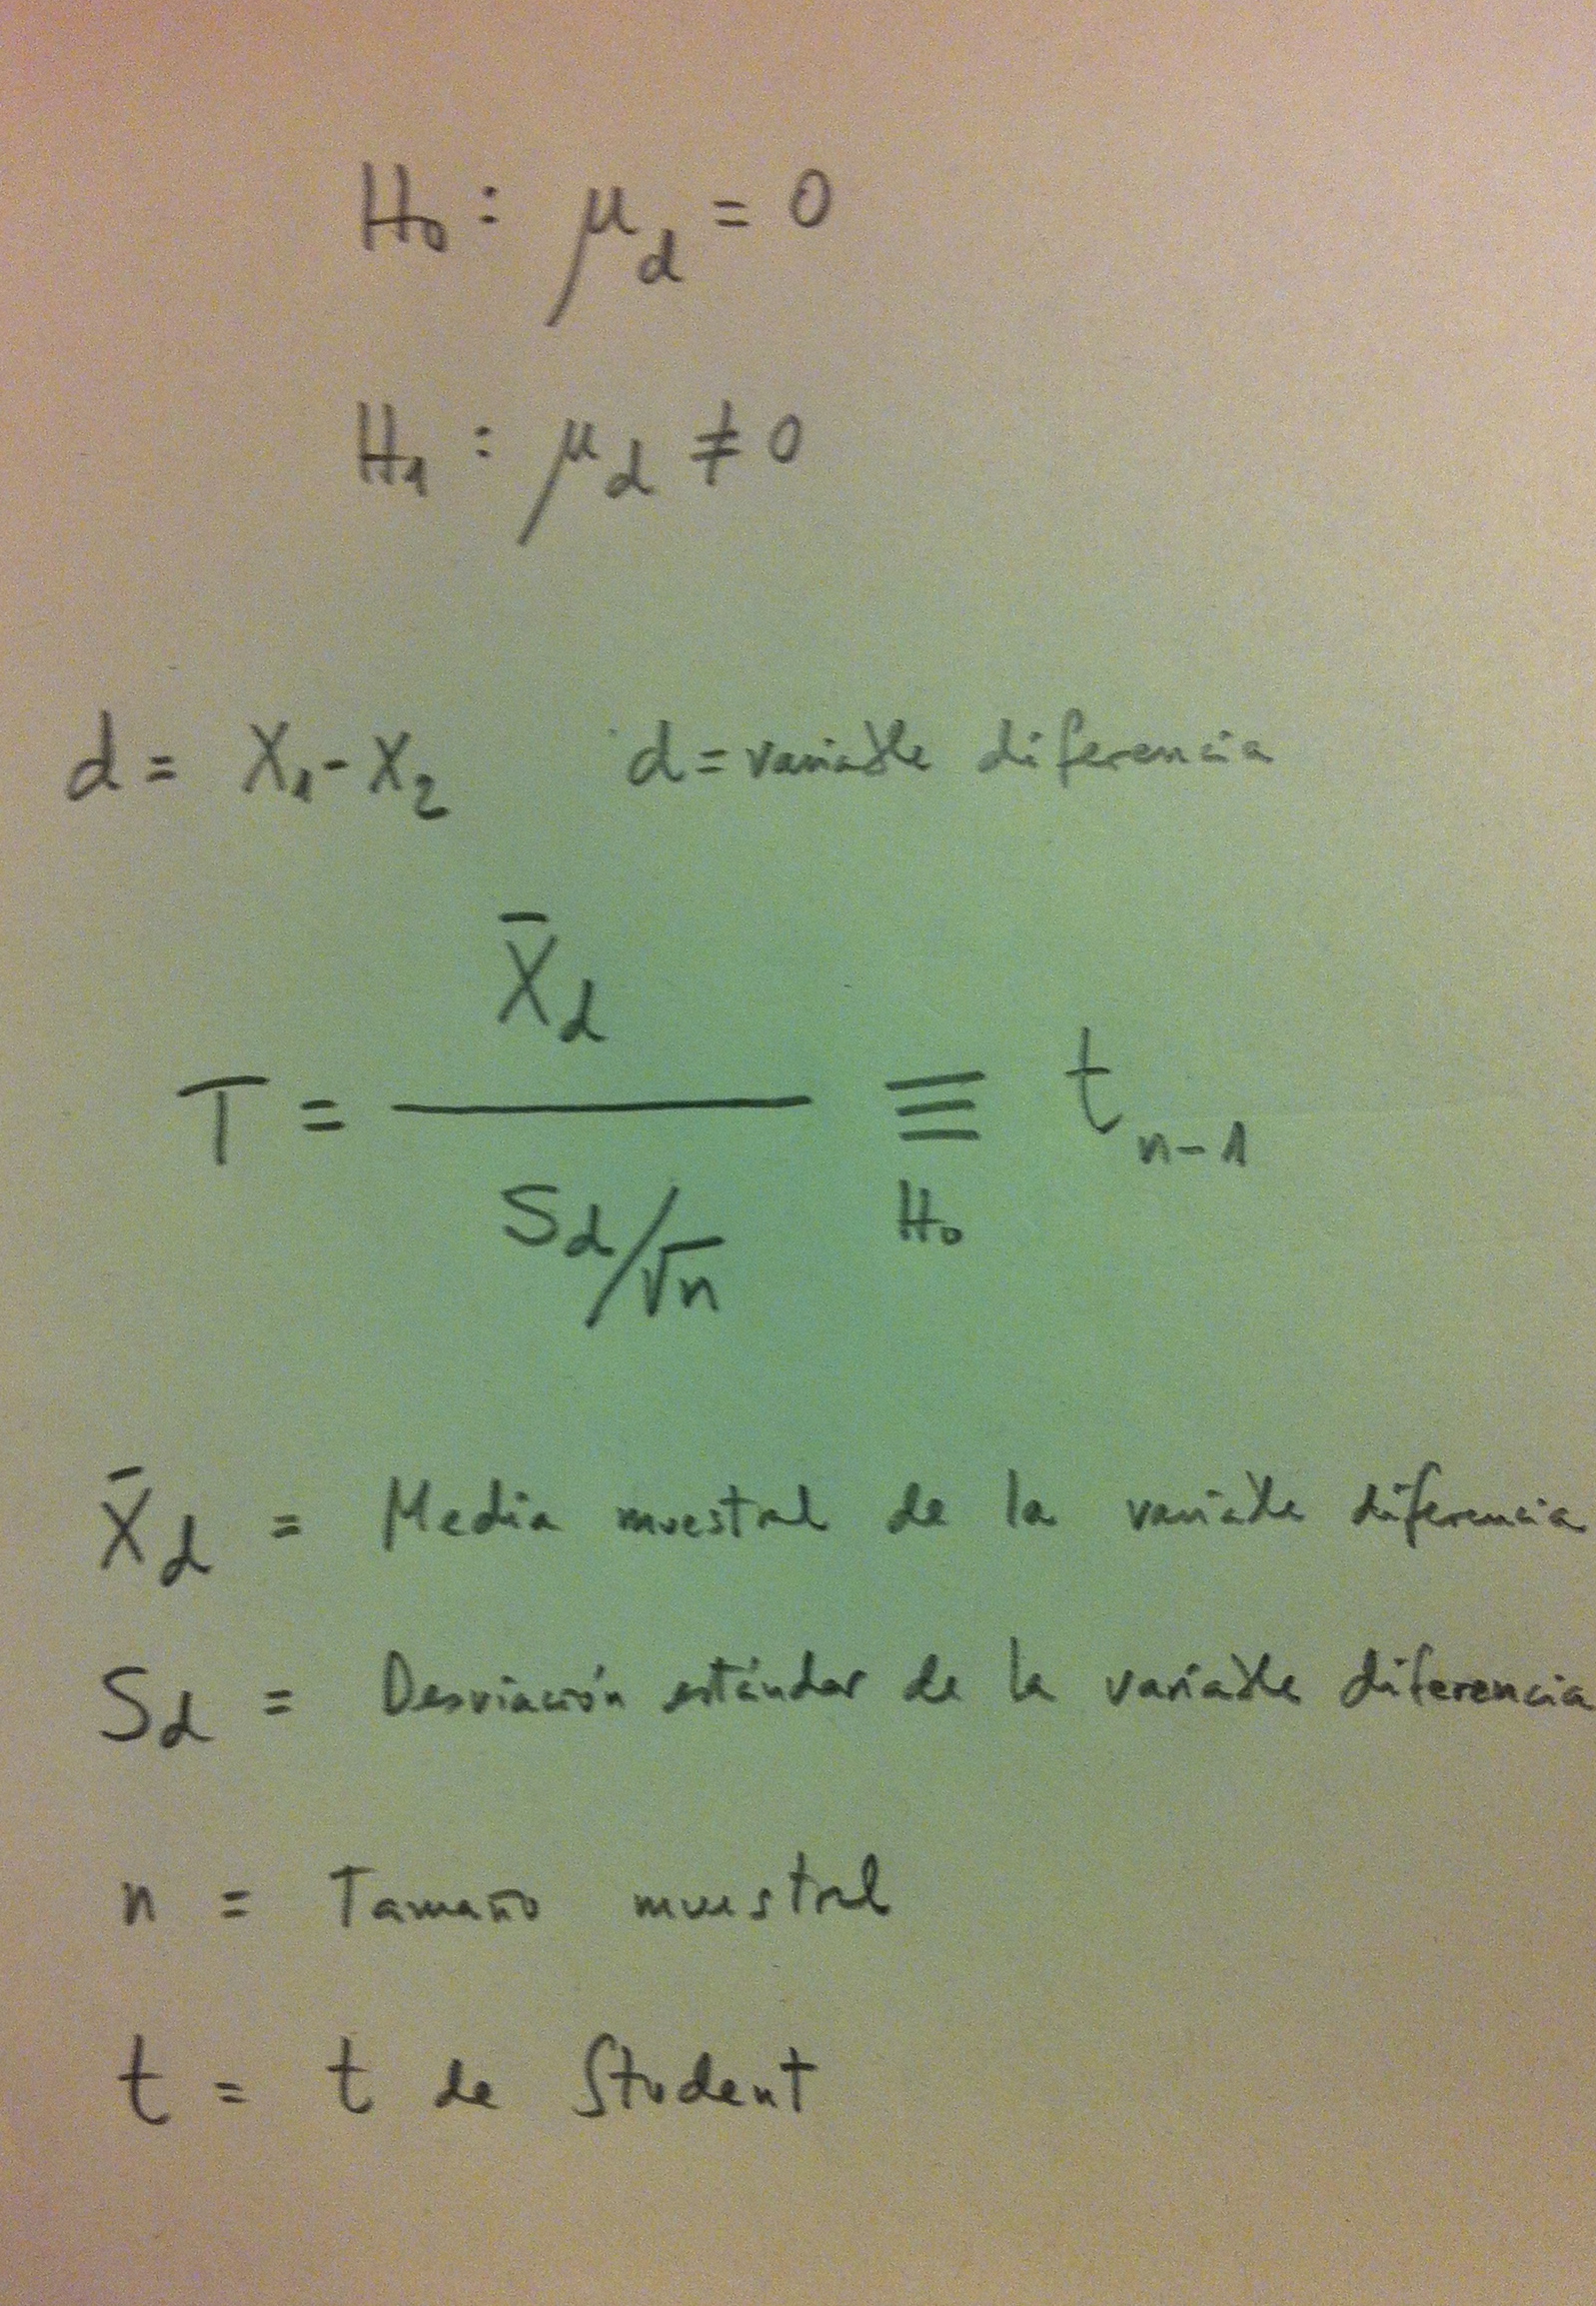 H₀ : μ_d = 0
H₁ : μ_d ≠ 0
d = X₁ - X₂ d = variable diferencia
T = X̄_d / (S_d/√n) ≡ t_{n-1}
H₀
X̄_d = Media muestral de la variable diferencia
S_d = Desviación estándar de la variable diferencia
n = Tamaño muestral
t = t de Student